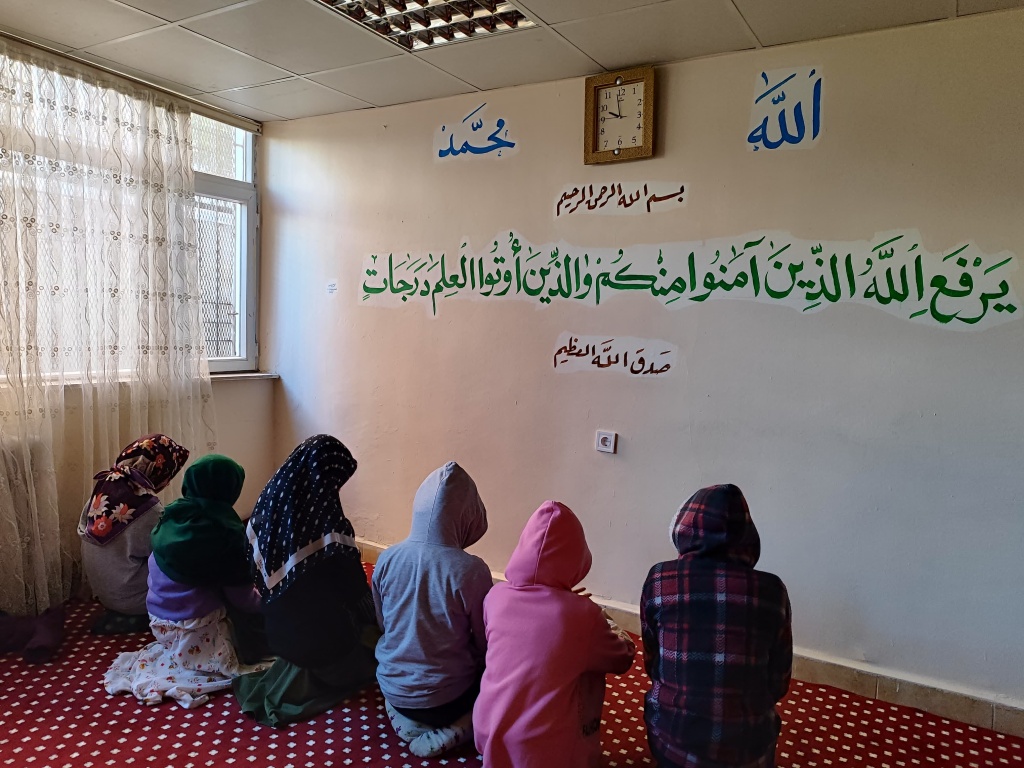 اللّٰه
محمّد
11 12 1
10 2
9 3
8 4
7 6 5
بسم الله الرحمن الرحيم
يَرْفَعِ اللَّهُ الَّذِينَ آمَنُوا مِنْكُمْ وَالَّذِينَ أُوتُوا الْعِلْمَ دَرَجَاتٍ
صَدَقَ اللَّه العظيم